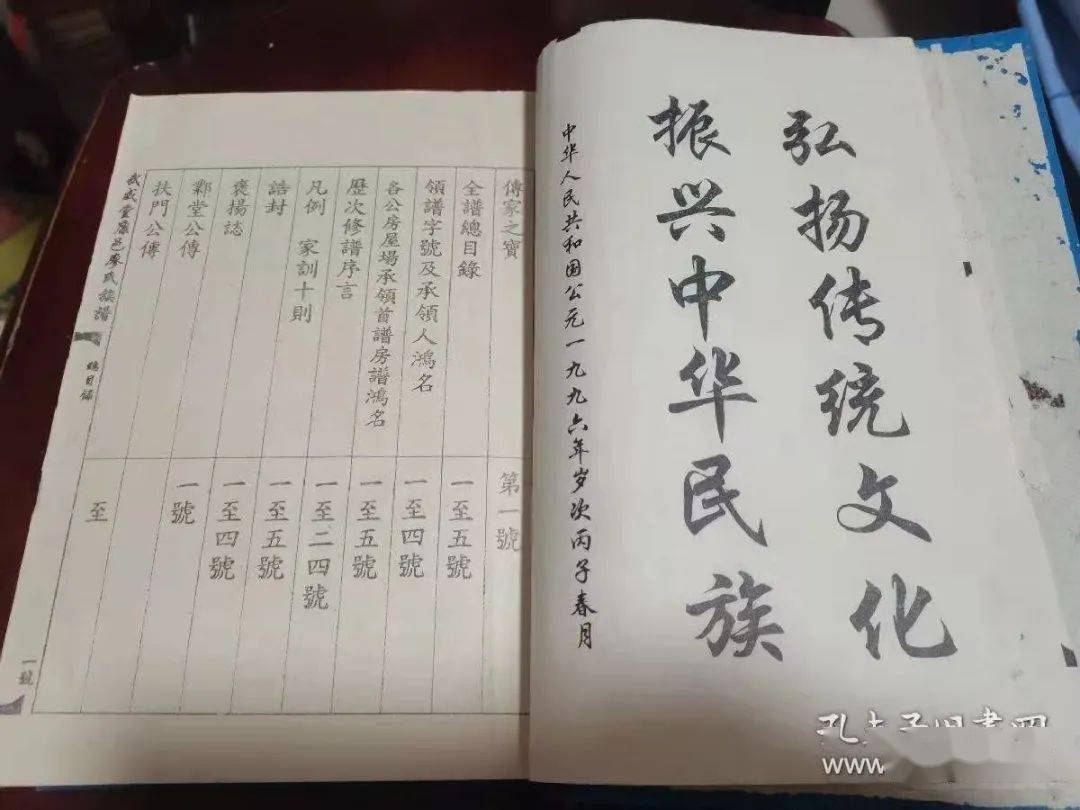 弘扬传统文化
振兴中华民族
中华人民共和国公元一九九六年岁次丙子春月
傳家之寶 第一號
全譜總目錄 一至五號
領譜字號及承領人鴻名 一至四號
各公房屋場承領首譜房譜鴻名 一至五號
歷次修譜序言 一至二四號
凡例 家訓十則 一至五號
誥封 一至四號
褒揚誌 一號
堂公傳
扶門公傳 至
武威堂邑廖氏族譜 總目錄 一號
孔夫子旧书网
www.